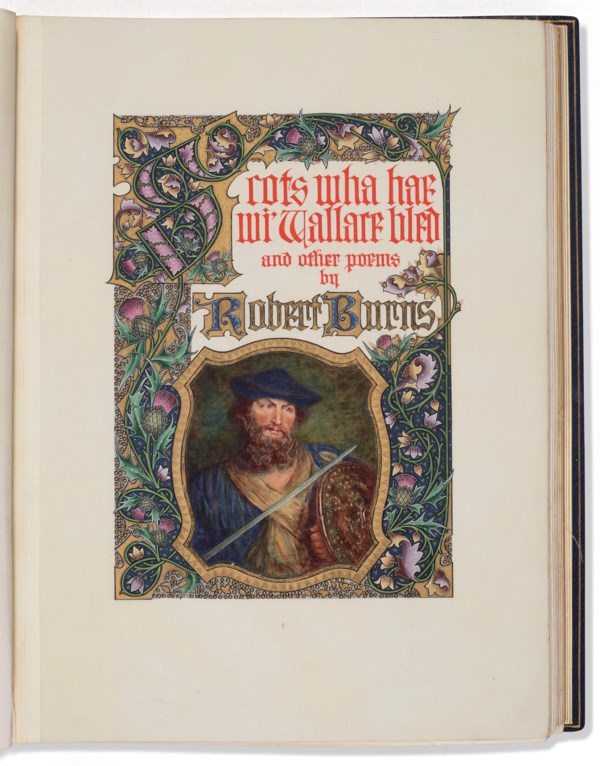 Scots wha hae
wi' Wallace bled
and other poems
by
Robert Burns